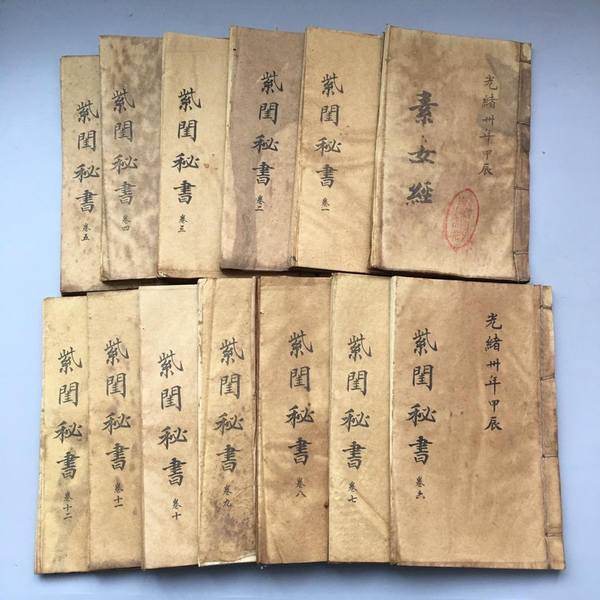 光緒卅年甲辰
素女經
紫閨秘書
卷一
紫閨秘書
卷二
紫閨秘書
卷三
紫閨秘書
卷四
紫閨秘書
卷五
光緒卅年甲辰
紫閨秘書
卷六
紫閨秘書
卷七
紫閨秘書
卷八
紫閨秘書
卷九
紫閨秘書
卷十
紫閨秘書
卷十一
紫閨秘書
卷十二